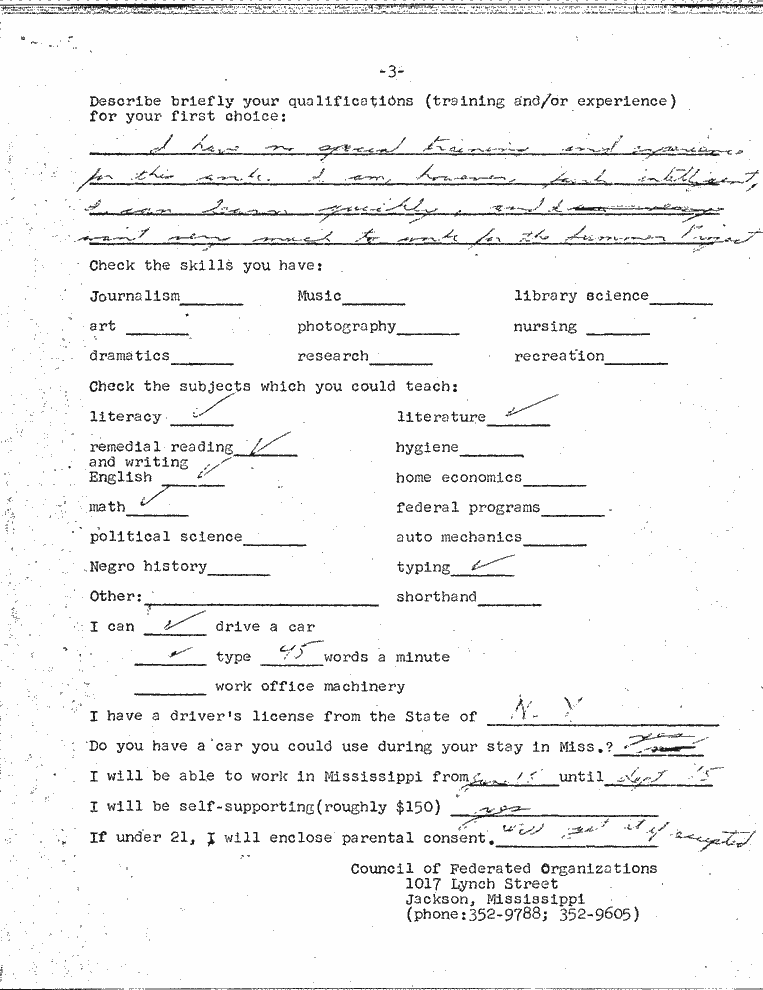 -3-
Describe briefly your qualifications (training and/or experience)
for your first choice:
I have no special training and experience
for this work. I am, however, fairly intelligent,
I can learn quickly, and I
want very much to work for the Summer Project
Check the skills you have:
Journalism______ Music______ library science______
art ______ photography______ nursing ______
dramatics______ research______ recreation______
Check the subjects which you could teach:
literacy ✓ literature ✓
remedial reading ✓ hygiene______
and writing
English ✓ home economics______
math ✓ federal programs______
political science______ auto mechanics______
Negro history______ typing ✓
Other:______ shorthand______
I can ✓ drive a car
✓ type 45 words a minute
______ work office machinery
I have a driver's license from the State of N. Y
Do you have a car you could use during your stay in Miss.? yes
I will be able to work in Mississippi from June 15 until Sept 15
I will be self-supporting(roughly $150) yes
If under 21, I will enclose parental consent. will get it if accepted
Council of Federated Organizations
1017 Lynch Street
Jackson, Mississippi
(phone:352-9788; 352-9605)